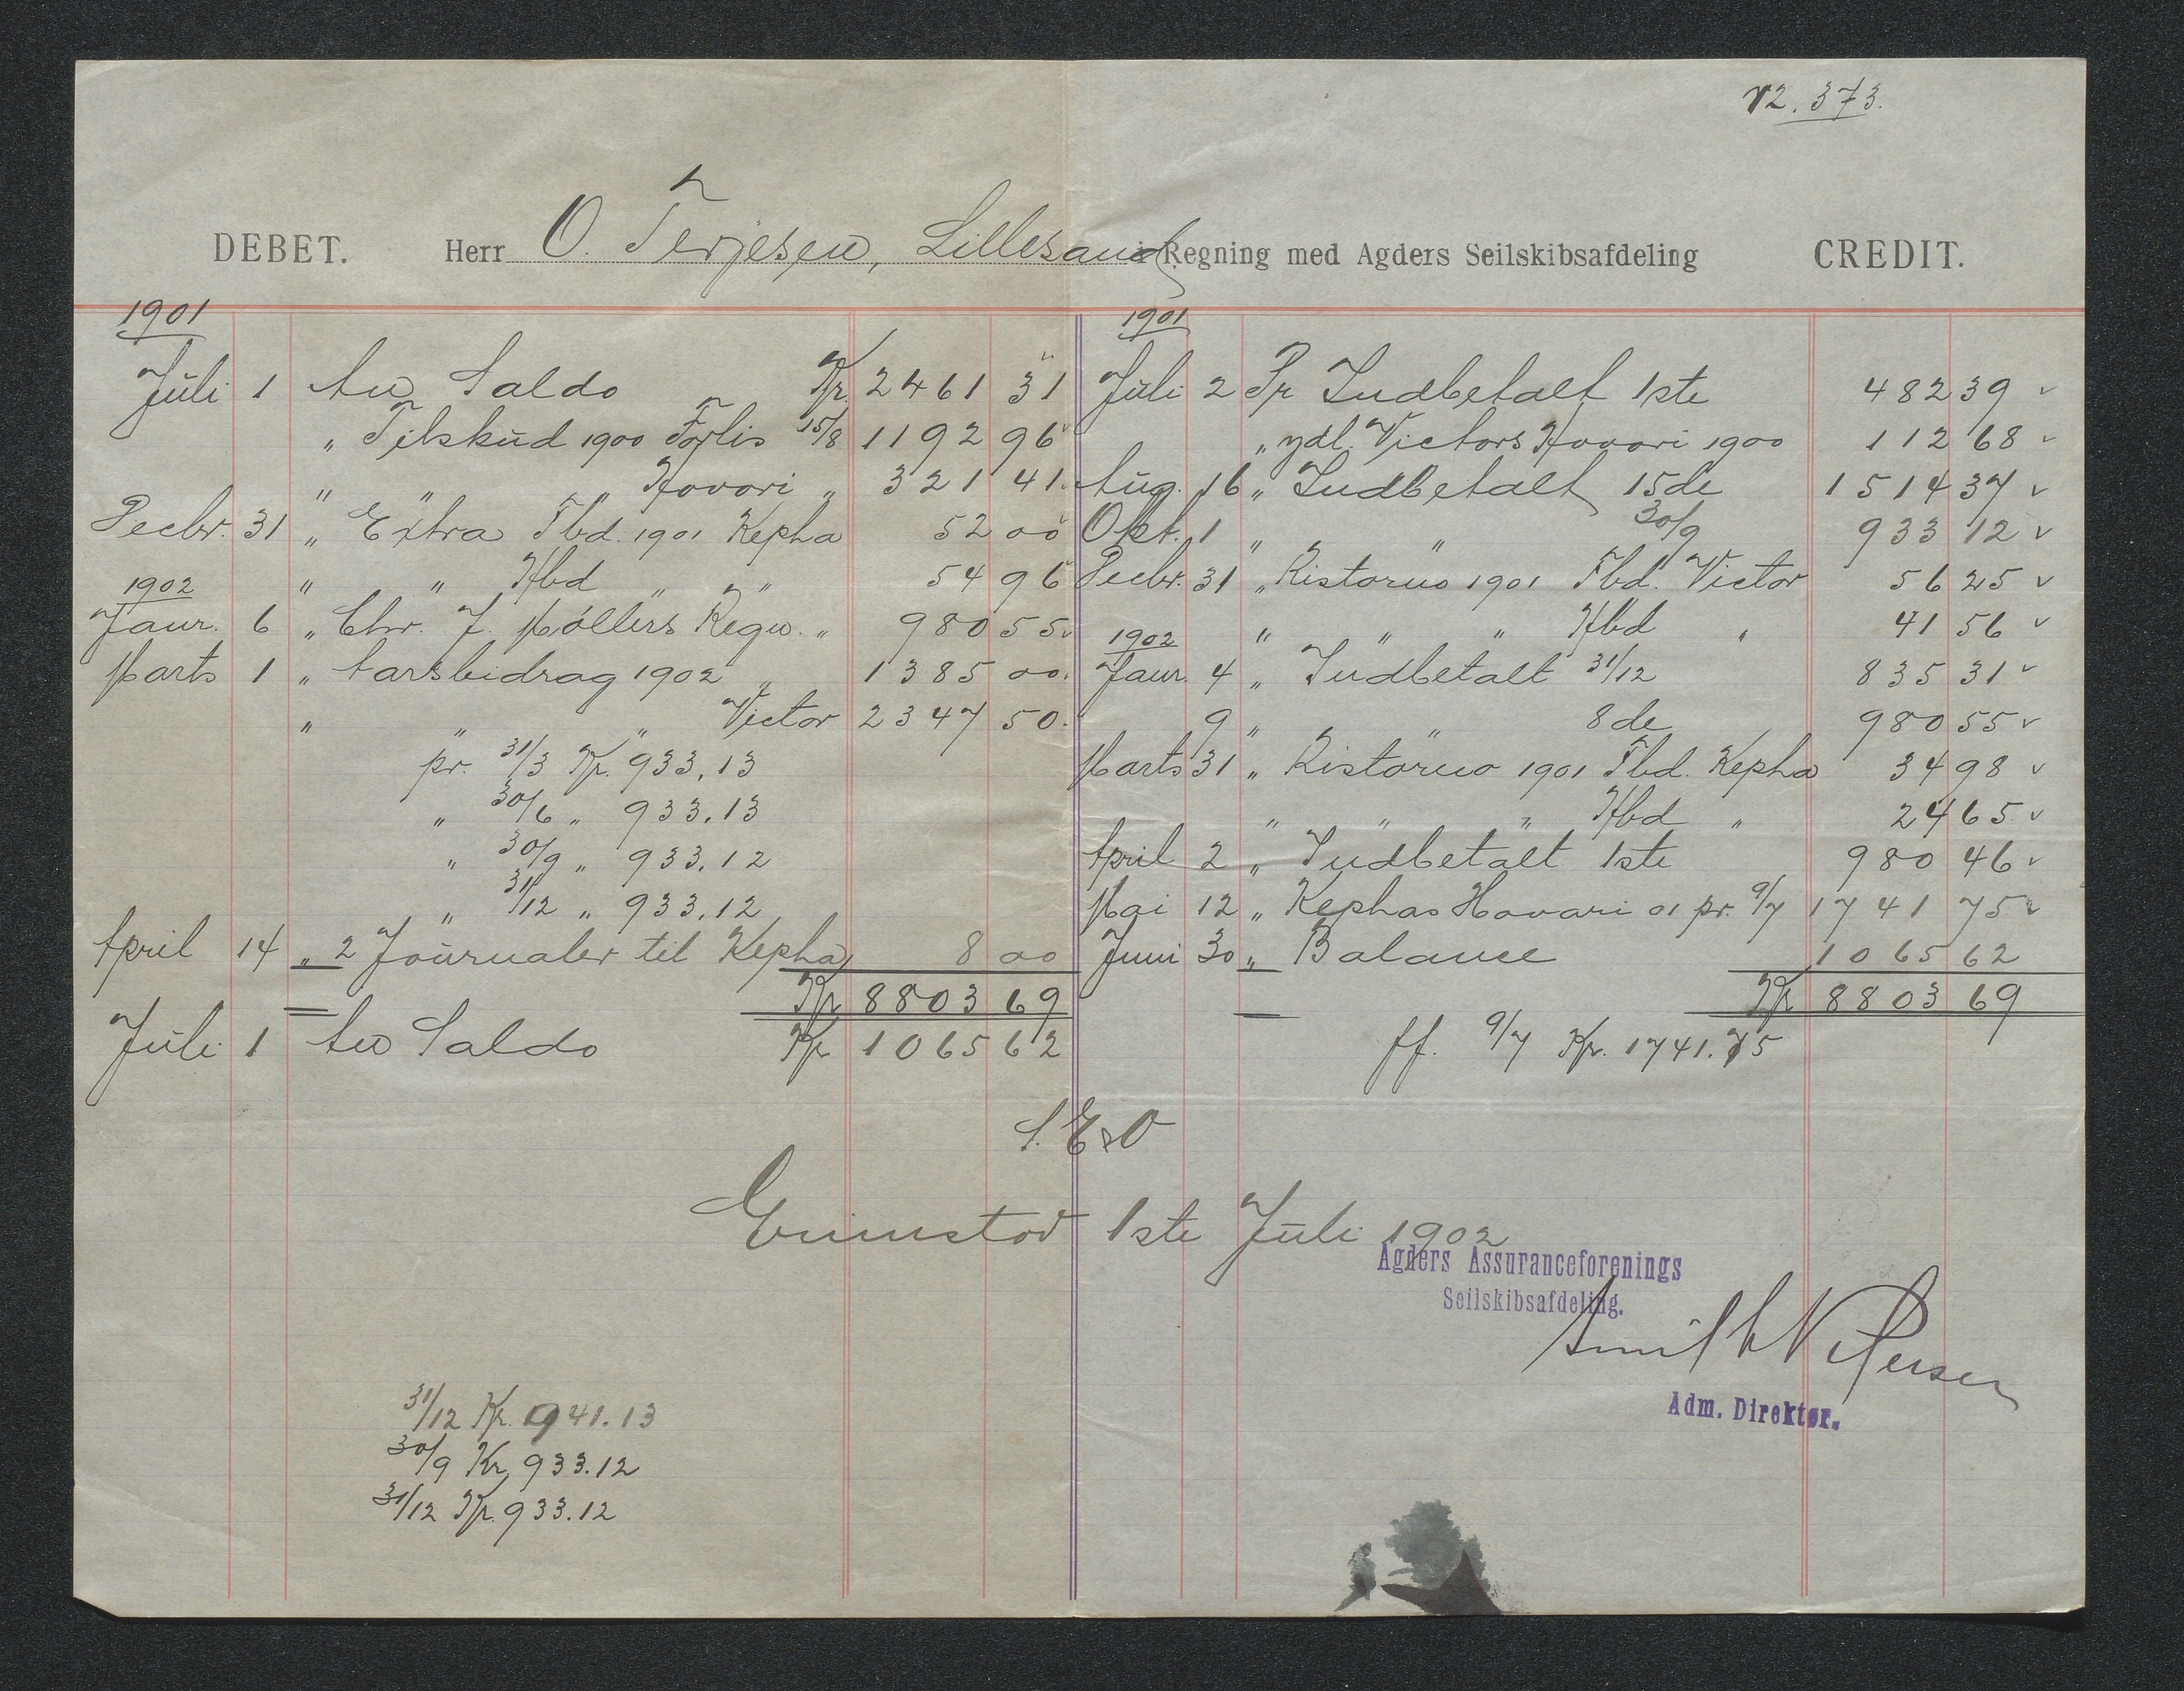 N2. 373.
DEBET. Herr O. Terjesen, Lillesand i Regning med Agders Seilskibsafdeling CREDIT.
1901
Juli 1 An Saldo Kr 2461 31
" Tilskud 1900 Forlis 15/8 1192 96
" " " Havari " 321 41
Decbr. 31 " Extra Fbd. 1901 Kepha 52 00
" " Hbd " " 54 96
1902
Janr. 6 " Chr. J. Møllers Regn. " 980 55
Marts 1 " Aarsbidrag 1902 " 1385 00
" " " Victor 2347 50
pr. 31/3 Kr. 933,13
" 30/6 " 933,13
" 30/9 " 933,12
" 31/12 " 933,12
April 14 " 2 Journaler til Kepha 8 00
Kr 8803 69
Juli 1 An Saldo Kr 1065 62
1901
Juli 2 Pr Indbetalt 1ste 482 39
" Victors Havari 1900 112 68
Aug. 16 " Indbetalt 15de 1514 37
Okt. 1 " " 30/9 933 12
Decbr. 31 " Ristorno 1901 Fbd. Victor 56 25
" " " Hbd " 41 56
1902
Janr. 4 " Indbetalt 31/12 835 31
9 " " 8de 980 55
Marts 31 " Ristorno 1901 Fbd. Kepha 34 98
" " " Hbd " 24 65
April 2 " Indbetalt 1ste 980 46
Mai 12 " Kephas Havari 01 pr. 9/7 1741 75
Juni 30 " Balance 1065 62
Kr 8803 69
ff. 9/7 Kr. 1741.75
S. E & O
Grimstad 1ste Juli 1902
Agders Assuranceforenings
Seilskibsafdeling.
Adm. Direktør.
31/12 Kr. 941.13
30/9 Kr. 933.12
31/12 Kr. 933.12